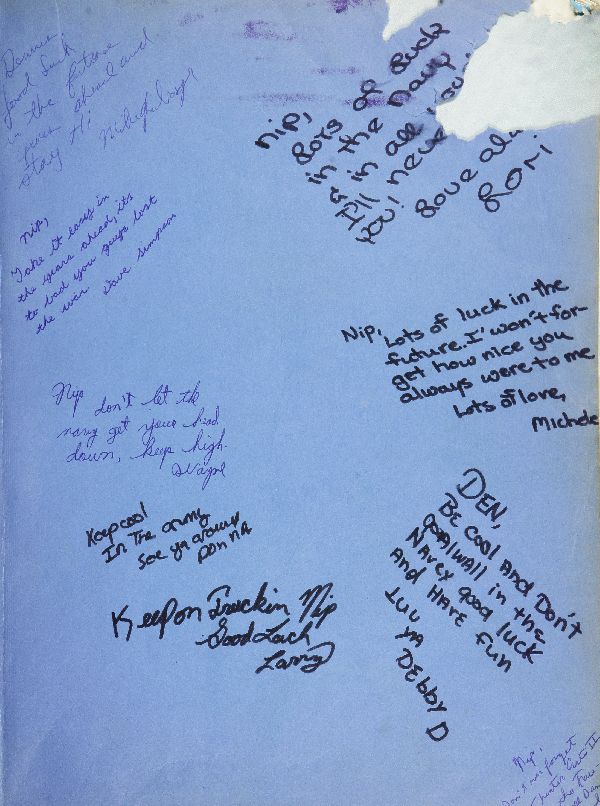 Dennis
Good Luck
in the future
years ahead and
stay Hi
Nip,
Lots of Luck
in the Navy
& in all
I'll never
you!
Love
Lori
Nip,
Take it easy in
the years ahead, its
to bad you guys lost
the war.
Dave Simpson
Nip,
Lots of luck in the
future. I won't for-
get how nice you
always were to me
Lots of love,
Michele
Nip
don't let the
navy get your head
down, keep high.
Wayne
Keep cool
In The army
See ya around
DonnA
DEN,
BE COOL AND Don't
in the
NAVEY good luck
And HAVE fun
LUV
YA
DEBBY D
Keep on Truckin Nip
Good Luck
Larry
Nip,
Don't forget